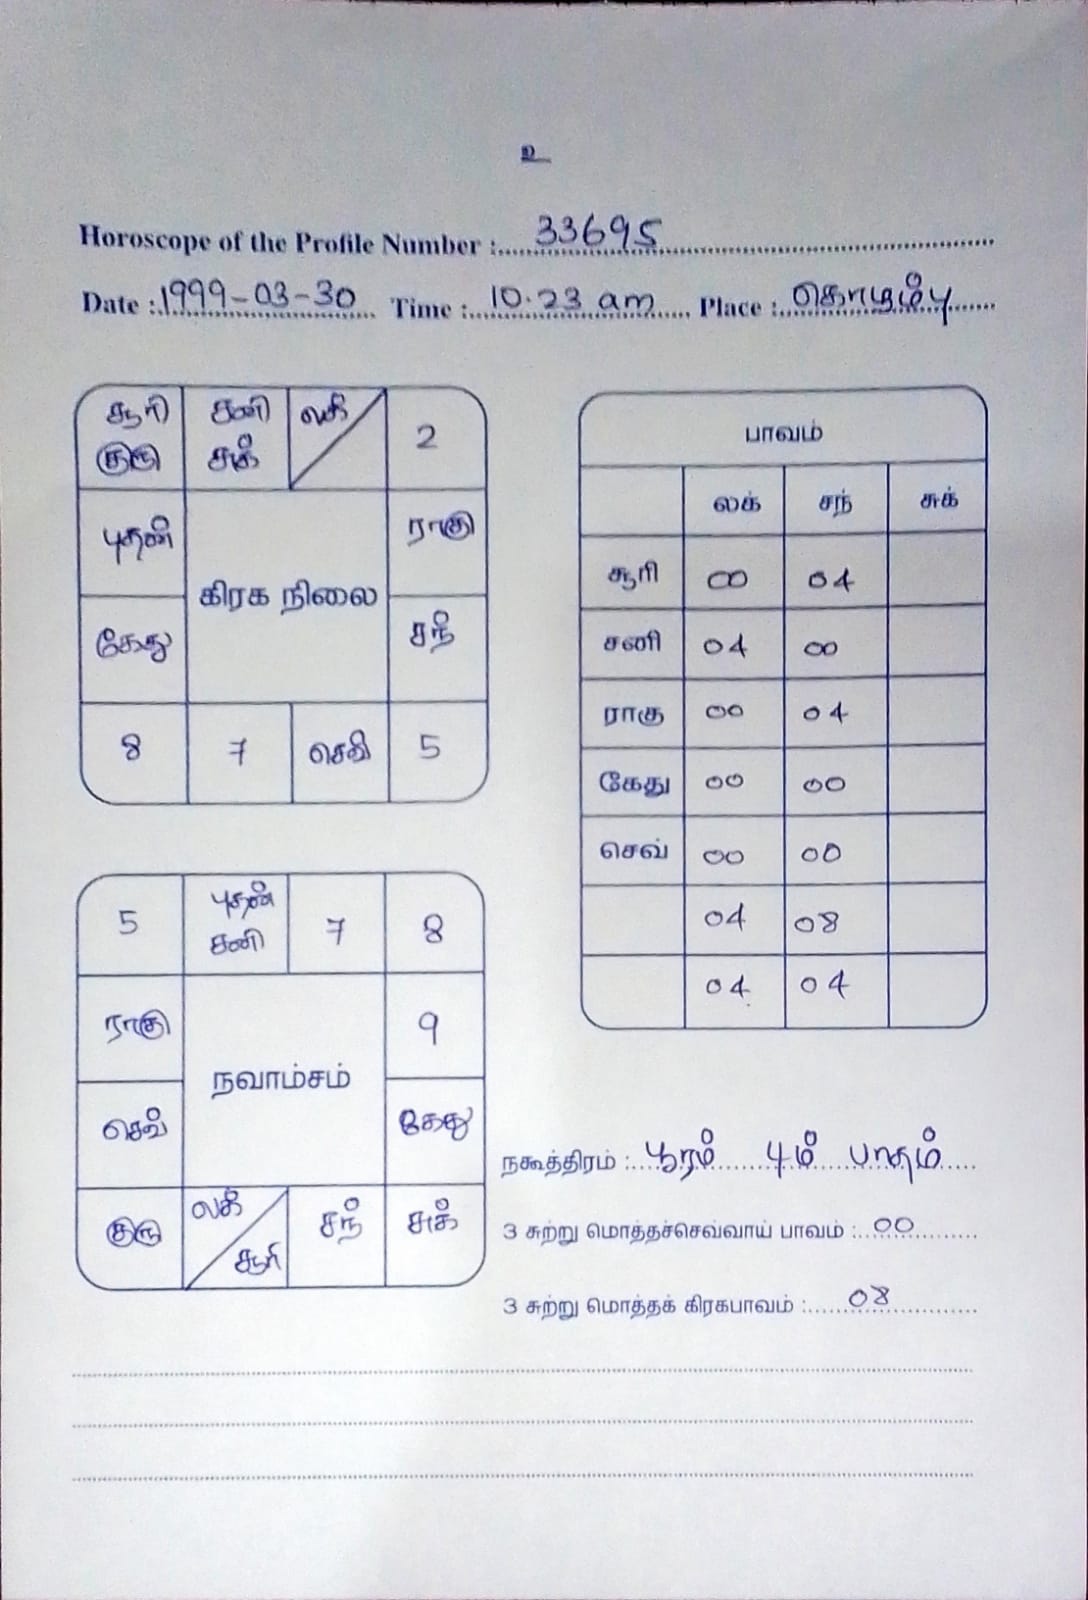 உ
Horoscope of the Profile Number : 33695
Date : 1999-03-30 Time : 10.23 am Place : கொழும்பு
சூரி சனி லக் 2
குரு சுக்
புதன் ராகு
கிரக நிலை
கேது சந்
8 7 செவ் 5
பாவம்
லக் சந் சுக்
சூரி 00 04
சனி 04 00
ராகு 00 04
கேது 00 00
செவ் 00 00
04 08
04 04
5 புதன் 7 8
சனி
ராகு 9
நவாம்சம்
செவ் கேது
குரு லக் சந் சுக்
சூரி
நகூத்திரம் : பூரம் 4ம் பாதம்
3 சுற்று மொத்தச்செவ்வாய் பாவம் : 00
3 சுற்று மொத்தக் கிரகபாவம் : 08